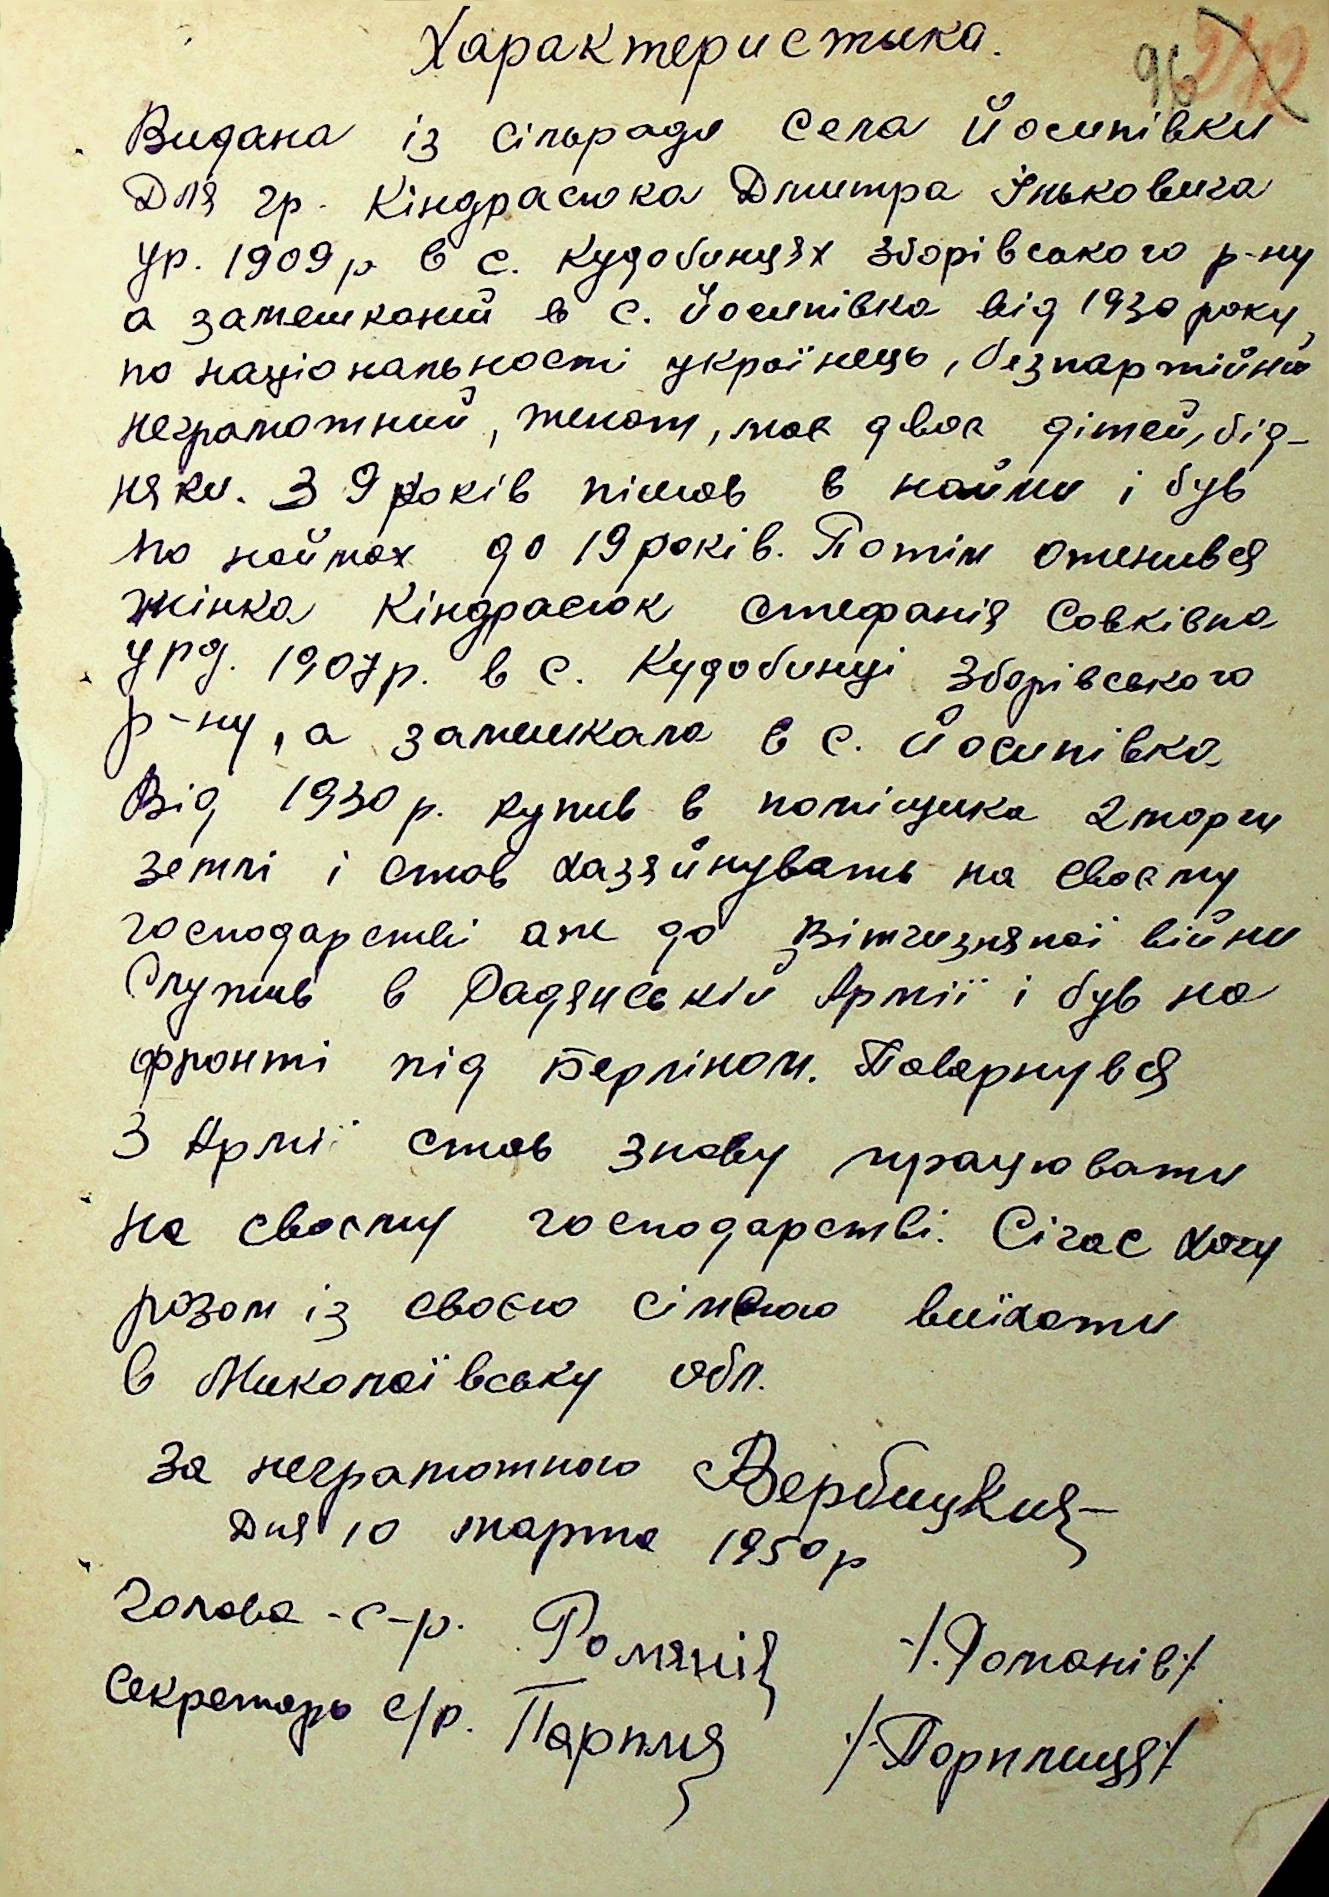 Характеристыка.
96
Видана із сільради села Йосипівки
Для гр. Кіндрасюка Дмитра Іньковича
ур. 1909р в с. Кудобинцях Зборівського р-ну
а замешканий в с. Йосипівка від 1930 року,
по національності українець, безпартійний
неграмотний, женат, має двоє дітей, бід-
няки. З 9 років пішов в найми і був
по наймах до 19 років. Потім оженився
жінка Кіндрасюк Стефанія Савківна
урд. 1907р. в с. Кудобинці Зборівського
р-ну, а замешкала в с. Йосипівка
Від 1930р. купив в поміщика 2 морги
землі і став хазяйнувать на своєму
господарстві аж до Вітчизняної війни
Служив в Радянській Армії і був на
фронті під Берліном. Повернувся
З Армії став знову працювати
на своєму господарстві. Січас хочу
разом із своєю сімєю виїхати
в Миколаївську обл.
за неграмотного Вербицкий
Дня 10 марта 1950р
Голова с-р. Романів /Романів/
Секретарь с/р. /Парплиця/